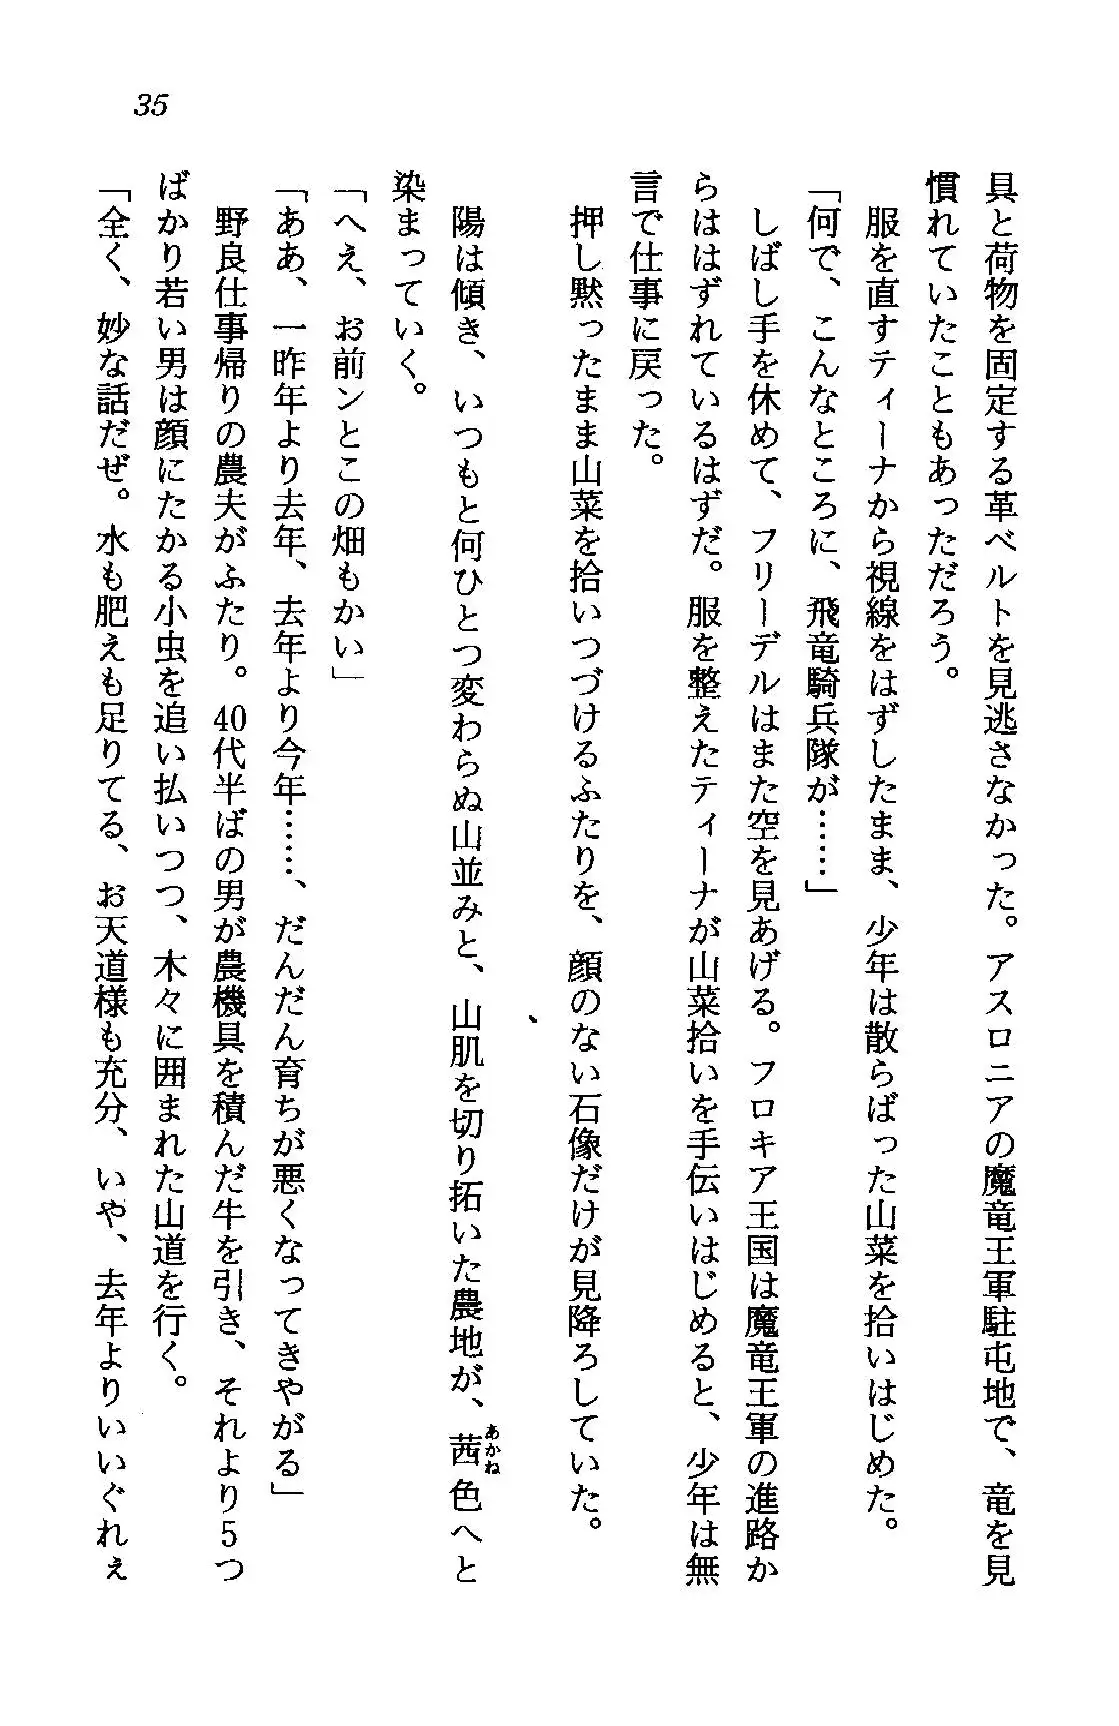 35
具と荷物を固定する革ベルトを見逃さなかった。アスロニアの魔竜王軍駐屯地で、竜を見
慣れていたこともあっただろう。
　服を直すティーナから視線をはずしたまま、少年は散らばった山菜を拾いはじめた。
「何で、こんなところに、飛竜騎兵隊が……」
　しばし手を休めて、フリーデルはまた空を見あげる。フロキア王国は魔竜王軍の進路か
らははずれているはずだ。服を整えたティーナが山菜拾いを手伝いはじめると、少年は無
言で仕事に戻った。
　押し黙ったまま山菜を拾いつづけるふたりを、顔のない石像だけが見降ろしていた。
　陽は傾き、いつもと何ひとつ変わらぬ山並みと、山肌を切り拓いた農地が、茜色へと
あかね
染まっていく。
「へえ、お前ンとこの畑もかい」
「ああ、一昨年より去年、去年より今年……、だんだん育ちが悪くなってきやがる」
　野良仕事帰りの農夫がふたり。40代半ばの男が農機具を積んだ牛を引き、それより5つ
ばかり若い男は顔にたかる小虫を追い払いつつ、木々に囲まれた山道を行く。
「全く、妙な話だぜ。水も肥えも足りてる、お天道様も充分、いや、去年よりいいぐれぇ